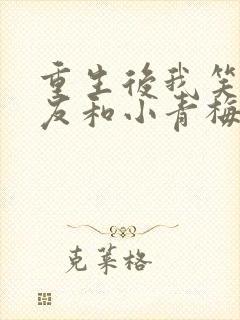 重生後我笑
友和小青梅
克萊格